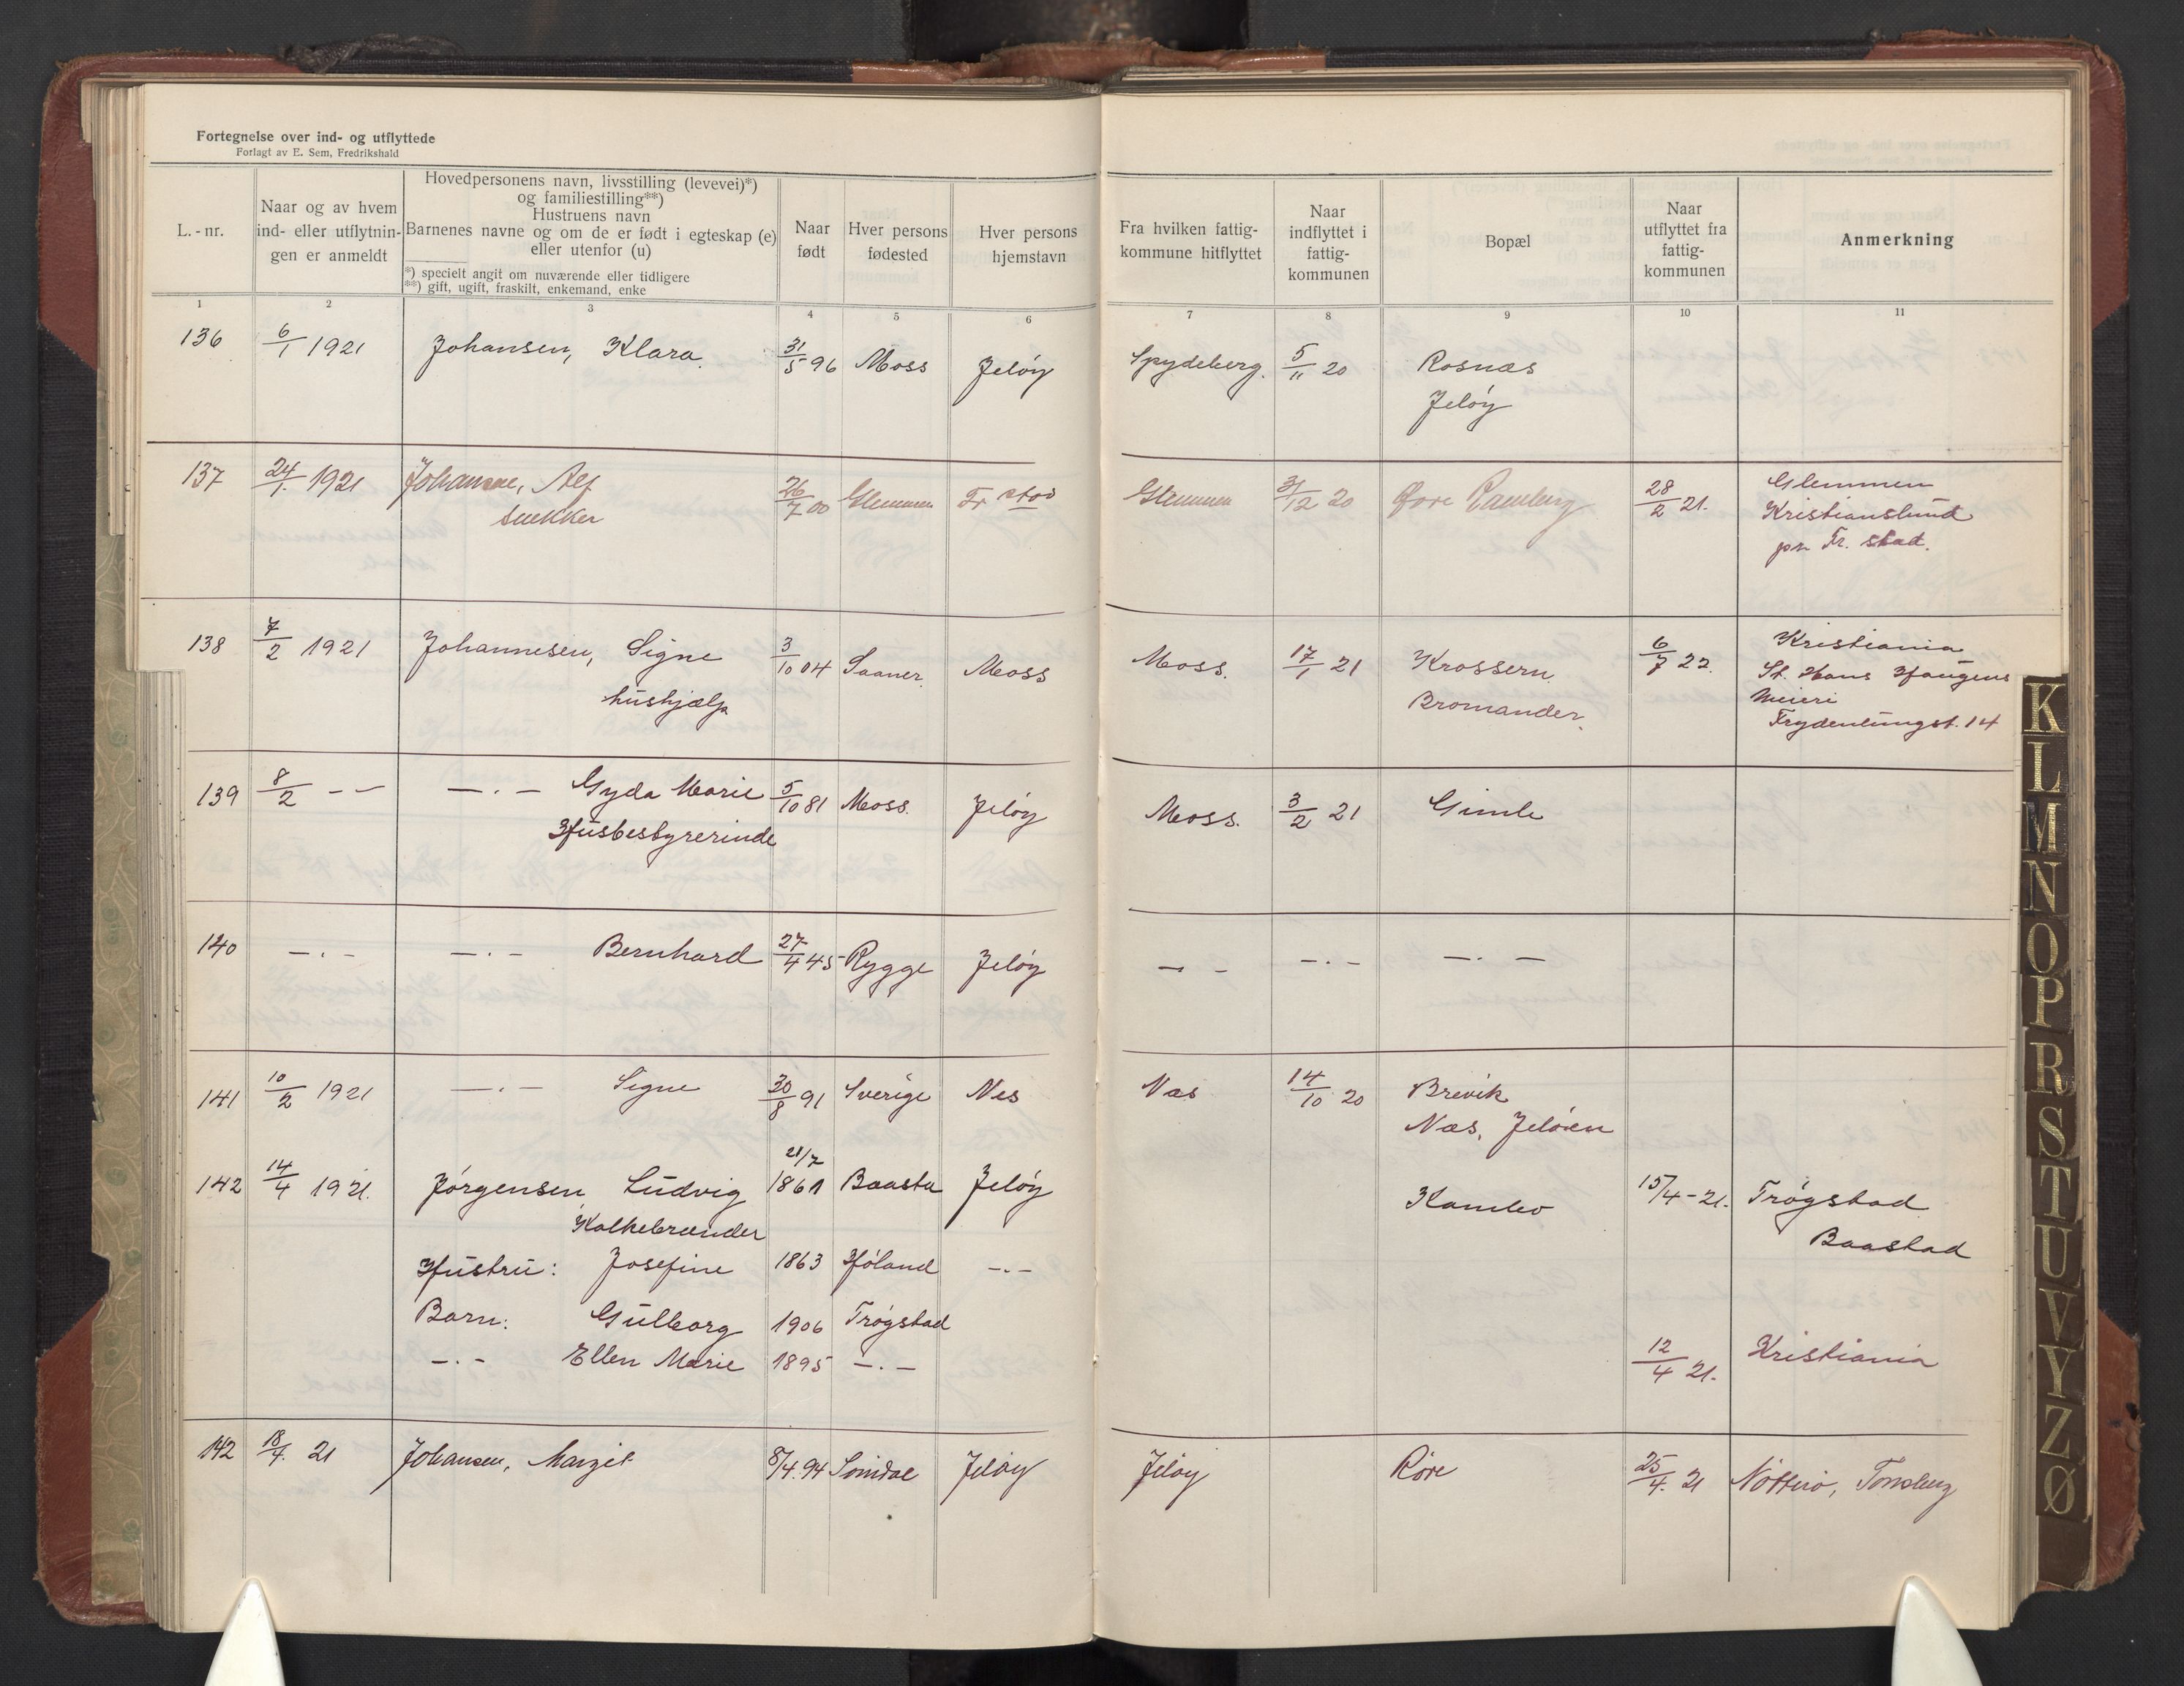 Fortegnelse over ind- og utflyttede
Forlagt av E. Sem, Fredrikshald
L.-nr.
Naar og av hvem
ind- eller utflytnin-
gen er anmeldt
Hovedpersonens navn, livsstilling (levevei)*)
og familiestilling**)
Hustruens navn
Barnenes navne og om de er født i egteskap (e)
eller utenfor (u)
*) specielt angit om nuværende eller tidligere
**) gift, ugift, fraskilt, enkemand, enke
Naar
født
Hver persons
fødested
Hver persons
hjemstavn
Fra hvilken fattig-
kommune hitflyttet
Naar
indflyttet i
fattig-
kommunen
Bopæl
Naar
utflyttet fra
fattig-
kommunen
Anmerkning
1 2 3 4 5 6 7 8 9 10 11
136 6/1 1921 Johansen, Klara. 31/5 96 Moss Jeløy Spydeberg. 5/11 20 Rosnæs
Jeløy
137 24/1. 1921 Johansen, Alf 26/7 00 Glemmen Fr stad Glemmen 31/12 20 Øvre Ramberg 28/2 21. Glemmen
snekker Kristianslund
pr. Fr. stad.
138 7/2 1921 Johannesen, Signe 3/10 04 Saaner. Moss Moss. 17/1 21 Krossern 6/7 22. Kristiania
hushjælp Bromander. St. Hans Haugens
Meieri
Frydenlungst. 14
139 8/2 -- —.— Gyda Marie 5/10 81 Moss. Jeløy Moss. 3/2 21 Gimle
Husbestyrerinde
140 —.— —.— Bernhard 27/4 45 Rygge Jeløy — - —.— —.—
141 10/2 1921 —.— Signe 30/8 91 Sverige Nes Næs 14/10 20 Brevik
Næs, Jeløen
142 14/4 1921. Jørgensen Ludvig 21/7 1861 Baasta Jeløy Kambo 15/4-21. Trøgstad
Kalkebrænder Baastad
Hustru: Josefine 1863 Høland —.—
Barn: Gulborg 1906 Trøgstad
—.— Ellen Marie 1895 —.— 12/4 21. Kristiania
142 18/4. 21 Johansen, Margit 8/4. 94 Jeløy Jeløy Røre 25/4. 21 Nøtterø, Tønsberg
K
L
M
N
O
P
R
S
T
U
V
Y
Z
Ø